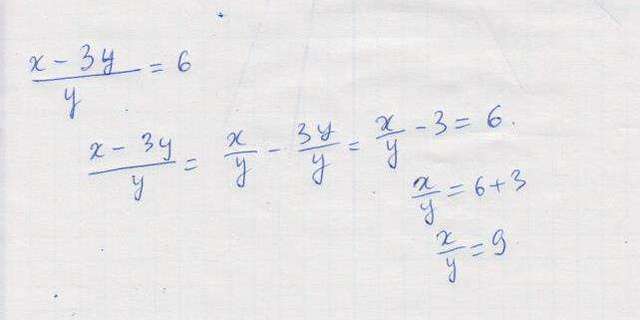 (x - 3y)/y = 6
(x - 3y)/y = x/y - 3y/y = x/y - 3 = 6.
x/y = 6 + 3
x/y = 9